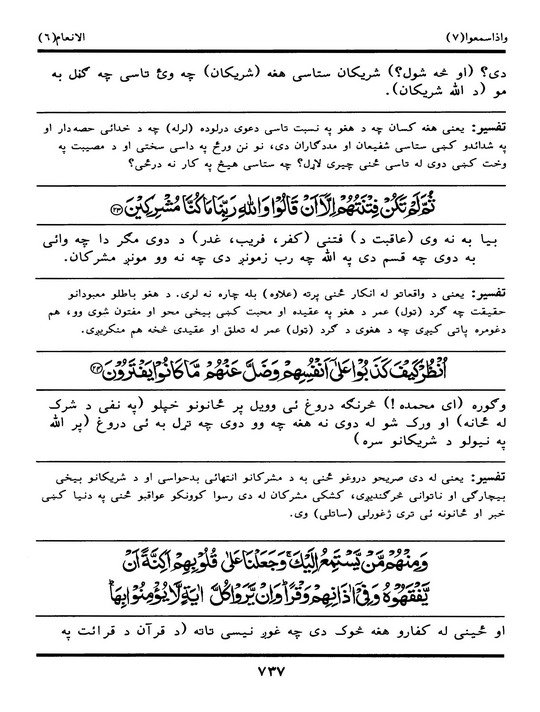 واذاسمعوا(٧) الانعام(٦)
دی؟ (او څه شول؟) شریکان ستاسی هغه (شریکان) چه وئ تاسی چه ګڼل به
مو (د الله شریکان).
تفسیر: یعنی هغه کسان چه د هغو په نسبت تاسی دعوی درلوده (لرله) چه د خدائی حصه‌دار او
په شدائدو کښی ستاسی شفیعان او مددګاران دی، نو نن ورځ په داسی سختی او د مصیبت په
وخت کښی دوی له تاسی ځنی چیری لاړل؟ چه ستاسی هیڅ په کار نه درځی؟
ثُمَّ لَمْ تَكُنْ فِتْنَتُهُمْ اِلَّآ اَنْ قَالُوْا وَاللّٰهِ رَبِّنَا مَا كُنَّا مُشْرِكِيْنَ ﴿٢٣﴾
بیا به نه وی (عاقبت د) فتنی (کفر، فریب، غدر) د دوی مګر دا چه وائی
به دوی چه قسم دی په الله چه رب زمونږ دی چه نه وو مونږ مشرکان.
تفسیر: یعنی د واقعاتو له انکار ځنی پرته (علاوه) بله چاره نه لری. د هغو باطلو معبودانو
حقیقت چه ګرد (ټول) عمر د هغو په عقیده او محبت کښی بیخی محو او مفتون شوی وو، هم
دغومره پاتی کیږی چه د هغوی د ګرد (ټول) عمر له تعلق او عقیدی څخه هم منکریږی.
اُنْظُرْ كَيْفَ كَذَبُوْا عَلٰٓى اَنْفُسِهِمْ وَضَلَّ عَنْهُمْ مَّا كَانُوْا يَفْتَرُوْنَ ﴿٢٤﴾
وګوره (ای محمده!) څرنګه دروغ ئی وویل پر ځانونو خپلو (په نفی د شرک
له ځانه) او ورک شو له دوی نه هغه چه وو دوی چه تړل به ئی دروغ (پر الله
په نیولو د شریکانو سره)
تفسیر: یعنی له دی صریحو دروغو ځنی به د مشرکانو انتهائی بدحواسی او د شریکانو بیخی
بیچارګی او ناتوانی څرګندیږی، کشکی مشرکان له دی رسوا کوونکو عواقبو ځنی په دنیا کښی
خبر او ځانونه ئی تری ژغورلی (ساتلی) وی.
وَمِنْهُمْ مَّنْ يَّسْتَمِعُ اِلَيْكَ ۚ وَجَعَلْنَا عَلٰى قُلُوْبِهِمْ اَكِنَّةً اَنْ
يَّفْقَهُوْهُ وَفِيْٓ اٰذَانِهِمْ وَقْرًا ؕ وَاِنْ يَّرَوْا كُلَّ اٰيَةٍ لَّا يُؤْمِنُوْا بِهَا ؕ
او ځینی له کفارو هغه څوک دی چه غوږ نیسی تاته (د قرآن د قرائت په
٧٣٧